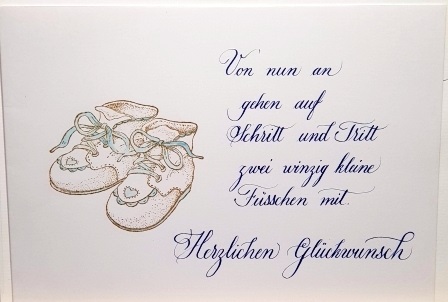 Von nun an
gehen auf
Schritt und Tritt
zwei winzig kleine
Füsschen mit.
Herzlichen Glückwunsch